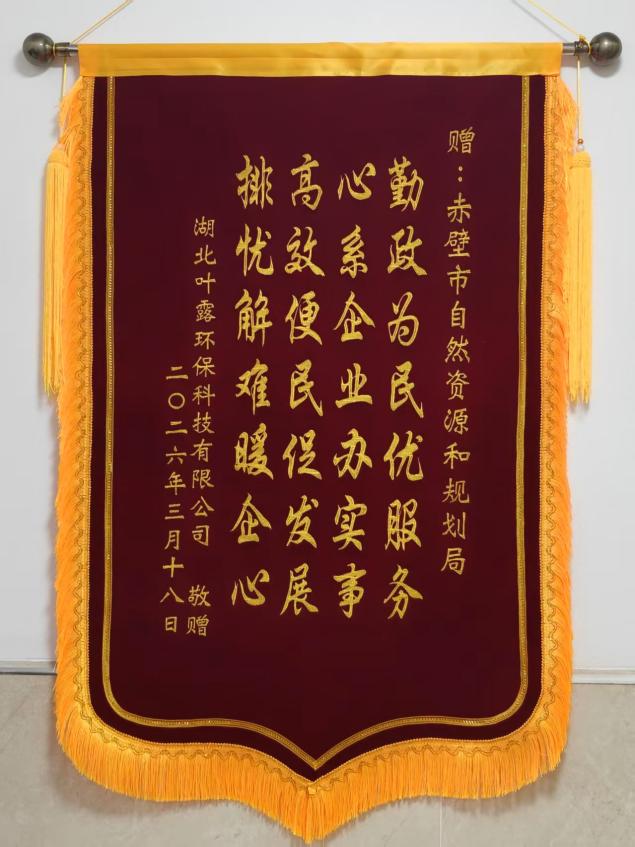 赠：赤壁市自然资源和规划局
勤政为民优服务
心系企业办实事
高效便民促发展
排忧解难暖企心
湖北叶露环保科技有限公司 敬赠
二〇二六年三月十八日